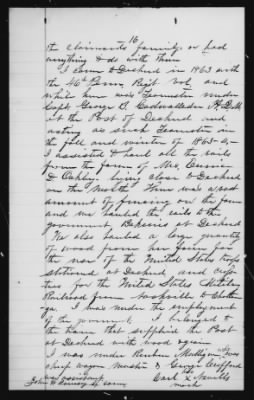 16
the claimants family or had
anything to do with them
I came to Decherd in 1863 with
the 46th Penn Regt vol and
while here was Teamster under
Capt George B. Cadwallader A.Q.M
at the Post of Decherd and
acting as such Teamster in
the fall and winter of 1863 &
I assisted to haul all the rails
from the farm of Mrs
& Oakley lying close to Decherd
on the North There was a good
amount of fencing on the farm
and we hauled the rails to the
government Bakeries at Decherd
We also hauled a large quantity
of wood from her farm for
the use of the United States troops
stationed at Decherd and
for the United States Military
Railroad from
I was under the employment
of the government I belonged to
the train that supplied the Post
at Decherd with wood again
I was under Reuben was
chief wagon master & George
was assistant
his
Carl x
mark
John W Ramsey